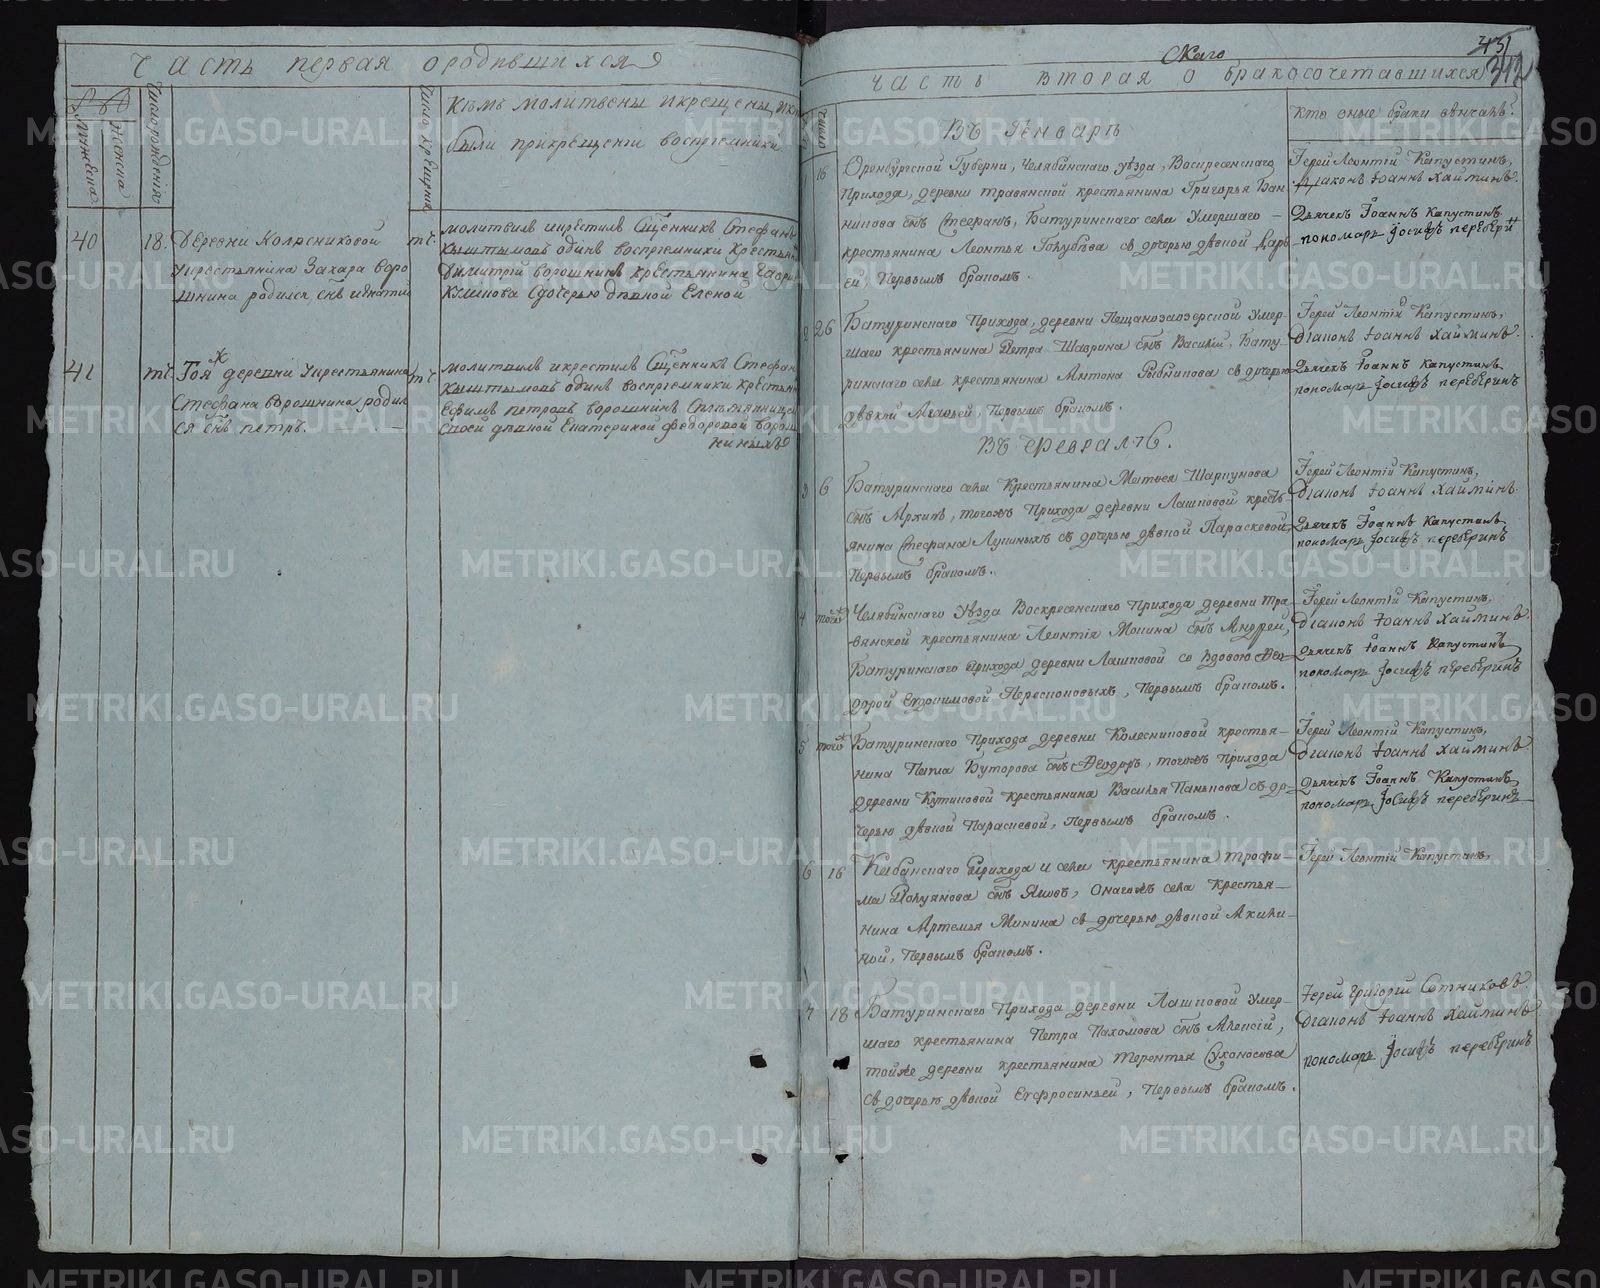 Часть первая ородившихся
мужеска
женска
Число рожденія
Число крещенія
Кѣмъ молитвены икрещены, икто
были прикрещеніи воспріемники
40 18. Деревни Колѣсниковой
укрестьянина Захара Воро
шнина родился снъ игнатій
молитвилъ икрестилъ Сщенникъ Стефанъ
Кыштымовъ одинъ воспріемники Крестьян
Димитрій ворошнинъ крестьянина
Сдочерью дѣвкой Еленой
41 Тоя ж деревни укрестьянина
Стефана ворошнина родил
ся снъ петръ.
молитвилъ икрестилъ Сщенникъ Стефан
Кыштымовъ одинъ воспріемники крестьян
Ефимъ петровъ ворошнинъ Сплемянницей
своей дѣвкой Екатериной федоровой ворош
ниныхъ
Скаго
431
342
часть вторая о бракосочетавшихся
число
Въ Генварѣ
Кто оные браки вѣнчалъ?
16 Оренбургской Губерни, Челябинскаго уѣзда, Воскресенскаго
Прихода, деревни травянской крестьянина Григорья Бан
никова снъ Стефанъ, Батуринскаго села Умершаго
крестьянина Леонтья Голубева съ дочерью дѣвкой Варв
ей, Первымъ бракомъ.
Іерей Леонтій Капустинъ,
Діаконъ Іоаннъ Хайминъ.
Дьячекъ Іоаннъ Капустинъ
пономарь Іосифъ перебѣри
2 26 Батуринскаго Прихода, деревни Пещанозаозерской Умер-
шаго крестьянина Петра Шаврина снъ Василій, Бату-
ринскаго села крестьянина Антона Рыбникова съ дочерью
дѣвкой Агафьей, Первымъ бракомъ.
Іерей Леонтій Капустинъ,
Діаконъ Іоаннъ Хайминъ.
Дьячекъ Іоаннъ Капустинъ
пономарь Іосифъ перебѣринъ
Въ Февралѣ.
3 6 Батуринскаго села Крестьянина Матвея Шаркунова
снъ Архипъ, тогожъ Прихода деревни Лашковой крестъ
янина Стефана Лукиныхъ съ дочерью дѣвкой Параскевой,
Первымъ бракомъ.
Іерей Леонтій Капустинъ,
Діаконъ Іоаннъ Хайминъ.
Дьячекъ Іоаннъ Капустинъ
пономарь Іосифъ перебѣринъ
4 тогож Челябинскаго уѣзда Воскресенскаго Прихода деревни тра-
вянской крестьянина Леонтія Мокина снъ Андрей,
Батуринскаго прихода деревни Лашковой со вдовою Ѳео-
дорой Евдокимовой, Первымъ бракомъ.
Іерей Леонтій Капустинъ,
Діаконъ Іоаннъ Хайминъ.
Дьячекъ Іоаннъ Капустинъ
пономарь Іосифъ перебѣринъ
5 тогож Батуринскаго Прихода деревни Колесниковой крестья-
нина Павла Буторова снъ Ѳеодоръ, тогожъ прихода
деревни Кутиковой крестьянина Василья Панькова съ до-
черью дѣвкой Параскевой, Первымъ бракомъ.
Іерей Леонтій Капустинъ,
Діаконъ Іоаннъ Хайминъ.
Дьячекъ Іоаннъ Капустинъ
пономарь Іосифъ перебѣринъ
6 16 Кабанскаго Прихода и села крестьянина трофи-
ма снъ Яковъ, онагожъ села крестья-
нина Артемья Минина съ дочерью дѣвкой Акили-
ной, Первымъ бракомъ.
Іерей Леонтій Капустинъ,
7 18 Батуринскаго Прихода деревни Лашковой Умер-
шаго крестьянина Петра Пахомова снъ Алексій,
тойже деревни крестьянина терентья Сухоносова
съ дочерью дѣвкой Евфросиньей, Первымъ бракомъ.
Іерей Григорій Сотниковъ.
Діаконъ Іоаннъ Хайминъ
пономарь Іосифъ перебѣринъ
METRIKI.GASO-URAL.RU